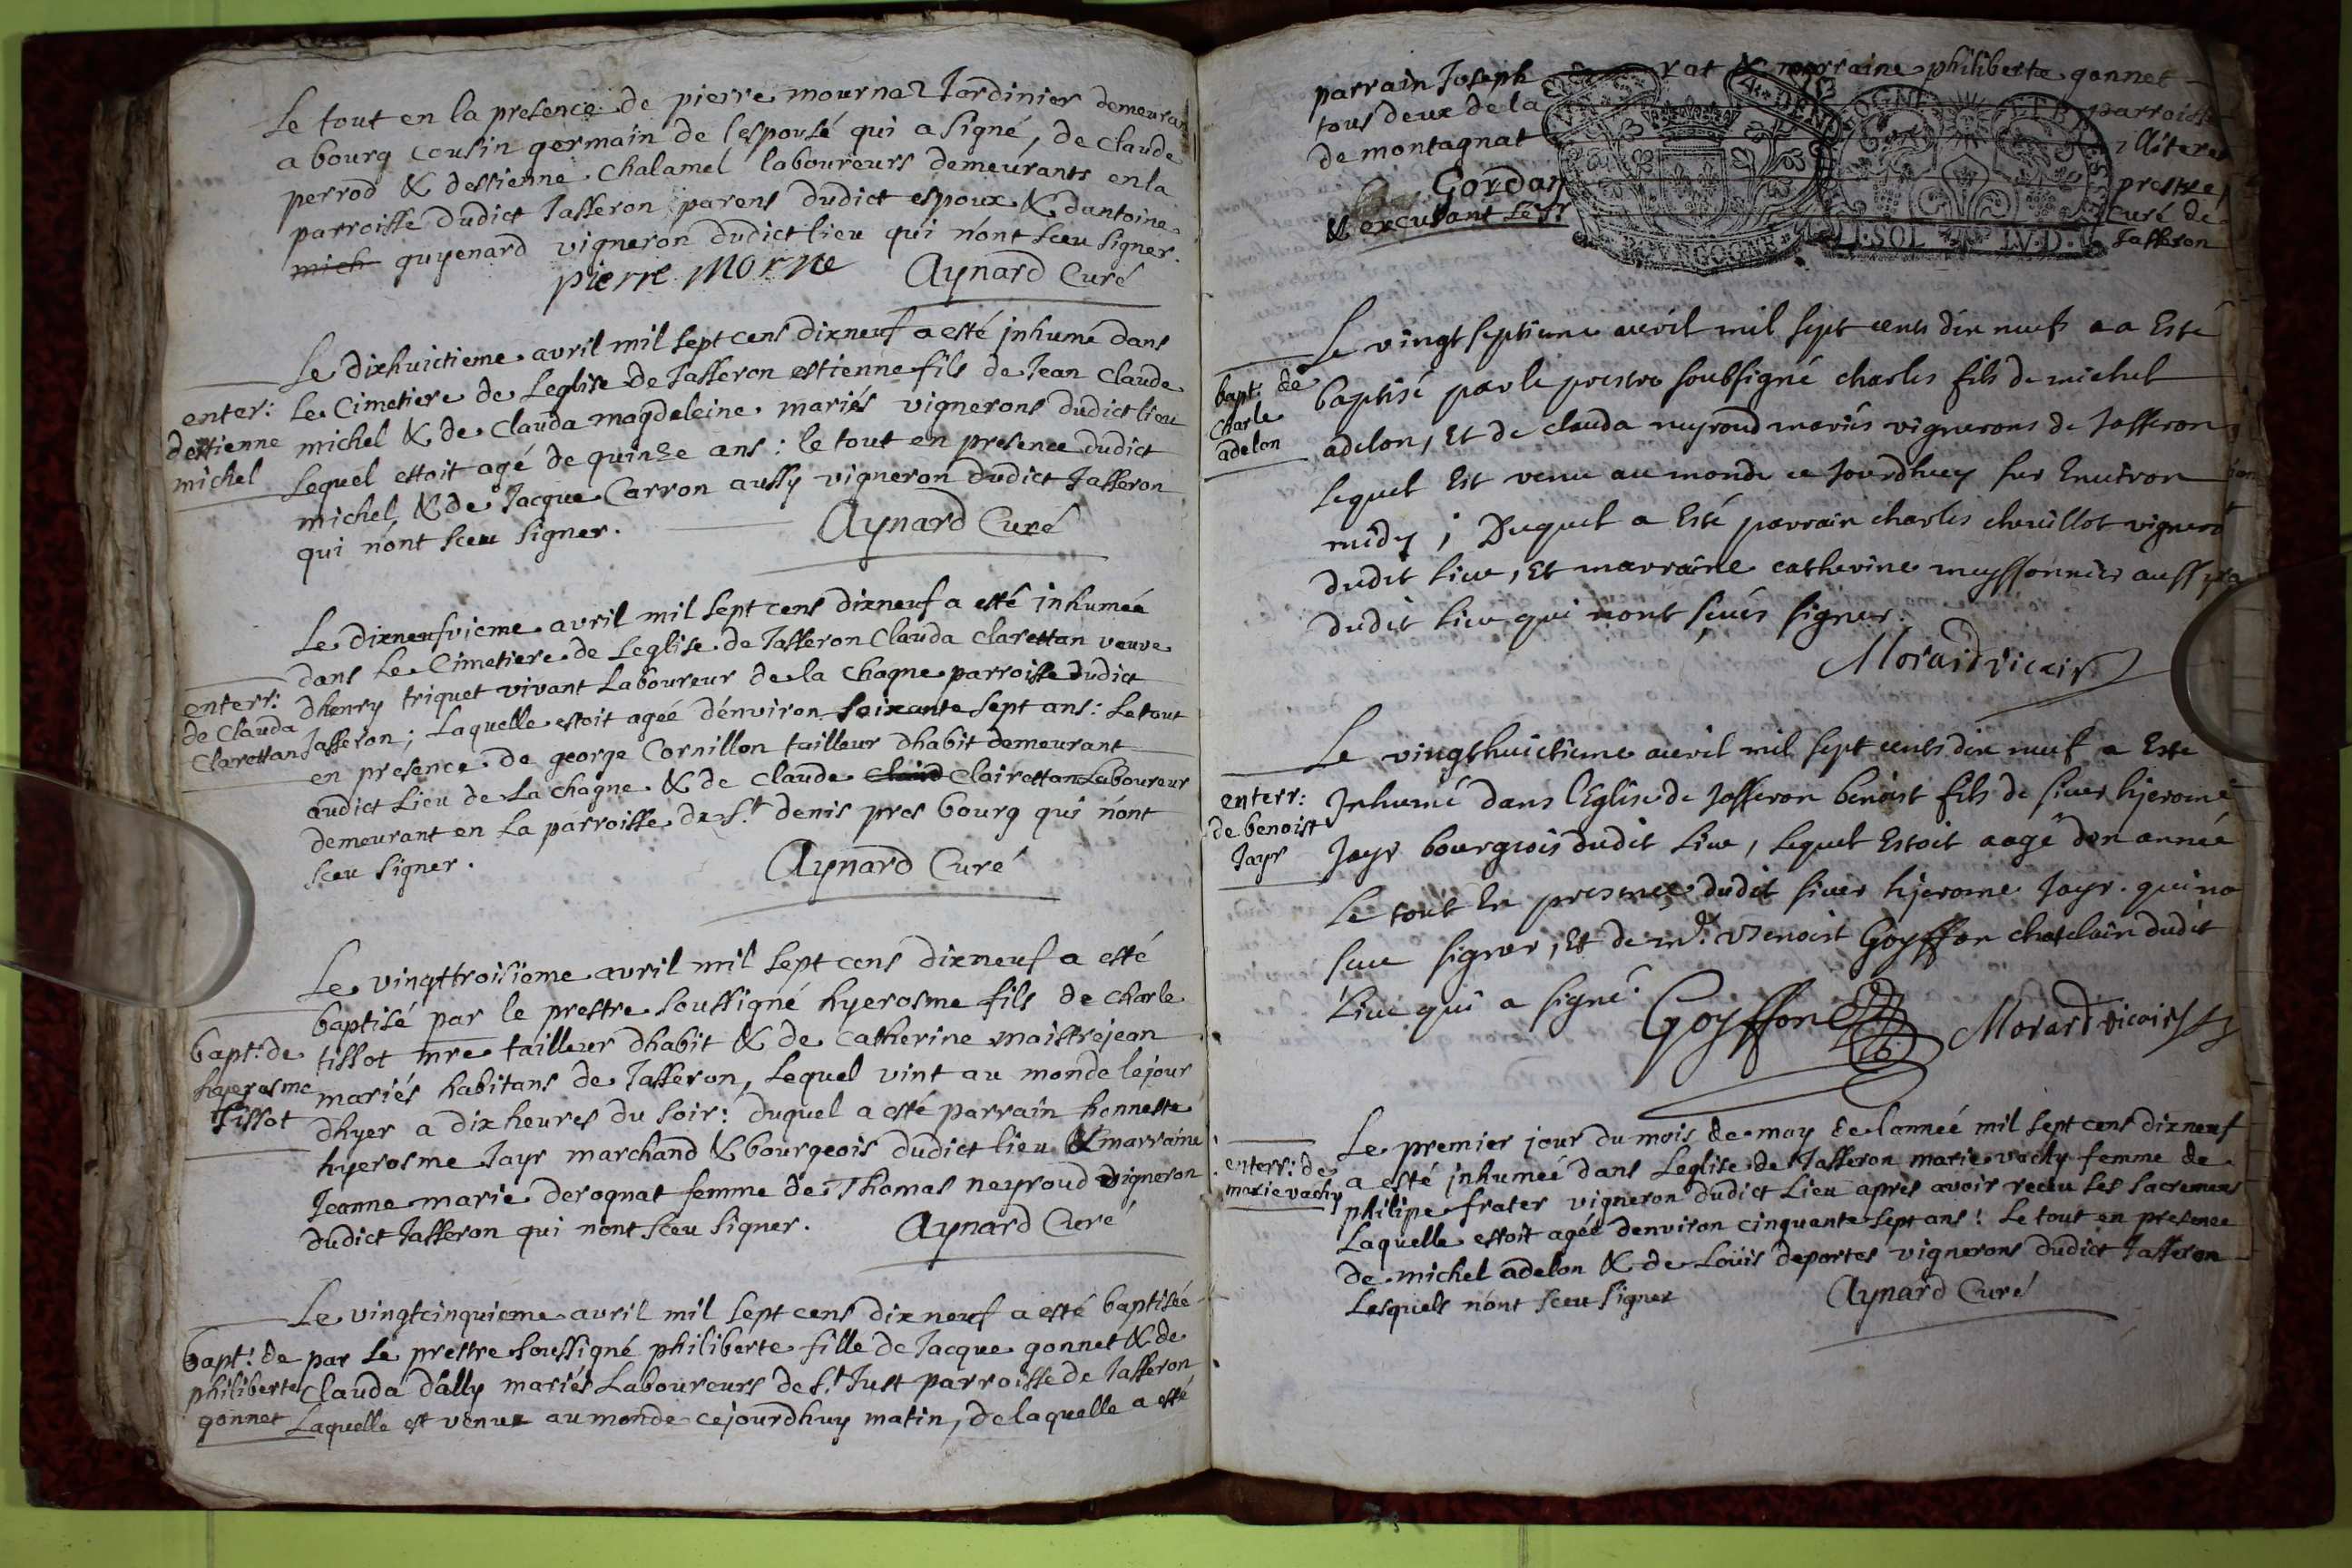 Le tout en la presence de pierre mournaz Jardinier demeurant
a bourg cousin germain de lespousé qui a signé, de claude
perrod & destienne Chalamel laboureurs demeurants en la
parroisse dudict Jasseron parens dudict espoux & dantoine
mich guyenard vigneron dudict lieu qui n'ont sceu signer.
pierre morne Aynard Curé
Le dixhuictieme avril mil sept cens dixneuf a esté jnhumé dans
enter: Le Cimetiere de Leglise de Jasseron estienne fils de Jean Claude
destienne michel & de Clauda magdeleine mariés vignerons dudict lieu
michel Lequel estoit agé de quinze ans : le tout en presence dudict
michel, & de Jacque Carron aussy vigneron dudict Jasseron
qui nont sceu signer. Aynard Curé
Le dixneufvieme avril mil sept cens dixneuf a esté jnhumée
dans Le Cimetiere de Leglise de Jasseron Clauda clarettan veuve
enterr: dhenry triquet vivant Laboureur de la Chagne parroisse dudict
de Clauda Jasseron ; Laquelle estoit agée dénviron soixante sept ans : Le tout
Clarettan en presence de george Cornillon tailleur dhabit demeurant
audict Lieu de La chagne & de claude Claird Clairettan Laboureur
demeurant en La parroisse de St. denis pres bourg qui n'ont
sceu signer. Aynard Curé
Le vingttroisieme avril mil sept cens dixneuf a esté
baptisé par le prestre soussigné hyerosme fils de charle
bapt: de tissot mre tailleur dhabit & de catherine maistrejean
hyerosme mariés habitans de Jasseron, Lequel vint au monde le jour
tissot dhyer a dix heures du soir : duquel a esté parrain honneste
hyerosme Jayr marchand & bourgeois dudict lieu & marraine
Jeanne marie derognat femme de Thomas neyroud vigneron
dudict Jasseron qui nont sceu signer. Aynard Curé
Le vingtcinquieme avril mil sept cens dixneuf a esté baptisée
bapt: de par Le prestre soussigné philiberte fille de Jacque gonnet & de
philiberte Clauda dally mariés Laboureurs de St. Just parroisse de Jasseron
gonnet Laquelle est venue au monde cejourdhuy matin, de laquelle a esté
parrain Joseph rat & marraine philiberte gonnet
tous deux de la parroisse
de montagnat illiteres
Gorday prestre
& excusant le Sr curé de
Jasseron
Le vingt septieme avril mil sept cents dix neuf a a Esté
bapt: de baptisé par le prestre soubsigné charles fils de michel
Charle adelon, Et de clauda neyroud mariés vignerons de Jasseron
adelon Lequel Est venu au monde ce Jourdhuy sur Environ
midy ; Duquel a Esté parrain charles chevillot vigneron
dudit lieu, Et marraine catherine meyssonnier aussy
dudit lieu qui n'ont sçeus signer.
Morard vicaire
Le vingthuictieme avril mil sept cents dix neuf a Esté
enterr: Jnhumé dans l'Eglise de Jasseron benoist fils de sieur hjerome
de benoist Jayr bourgeois dudit Lieu, Lequel Estoit aagé d'un année
Jayr Le tout En presence dudit sieur hjerome Jayr. qui na
sceu signer, Et de me. Benoist Goyffon chatelain dudit
Lieu qui a signé. Goyffon Morard vicaire
Le premier jour du mois de may de lanneé mil sept cens dixneuf
enterr: de a esté jnhumeé dans Leglise de Jasseron marie vachy femme de
marie vachy philipe frater vigneron dudict Lieu apres avoir receu ses sacremens
Laquelle estoit agée denviron cinquante sept ans : Le tout en presence
de michel adelon & de Loüis deportes vignerons dudict Jasseron
Lesquels n'ont sceu signer Aynard Curé